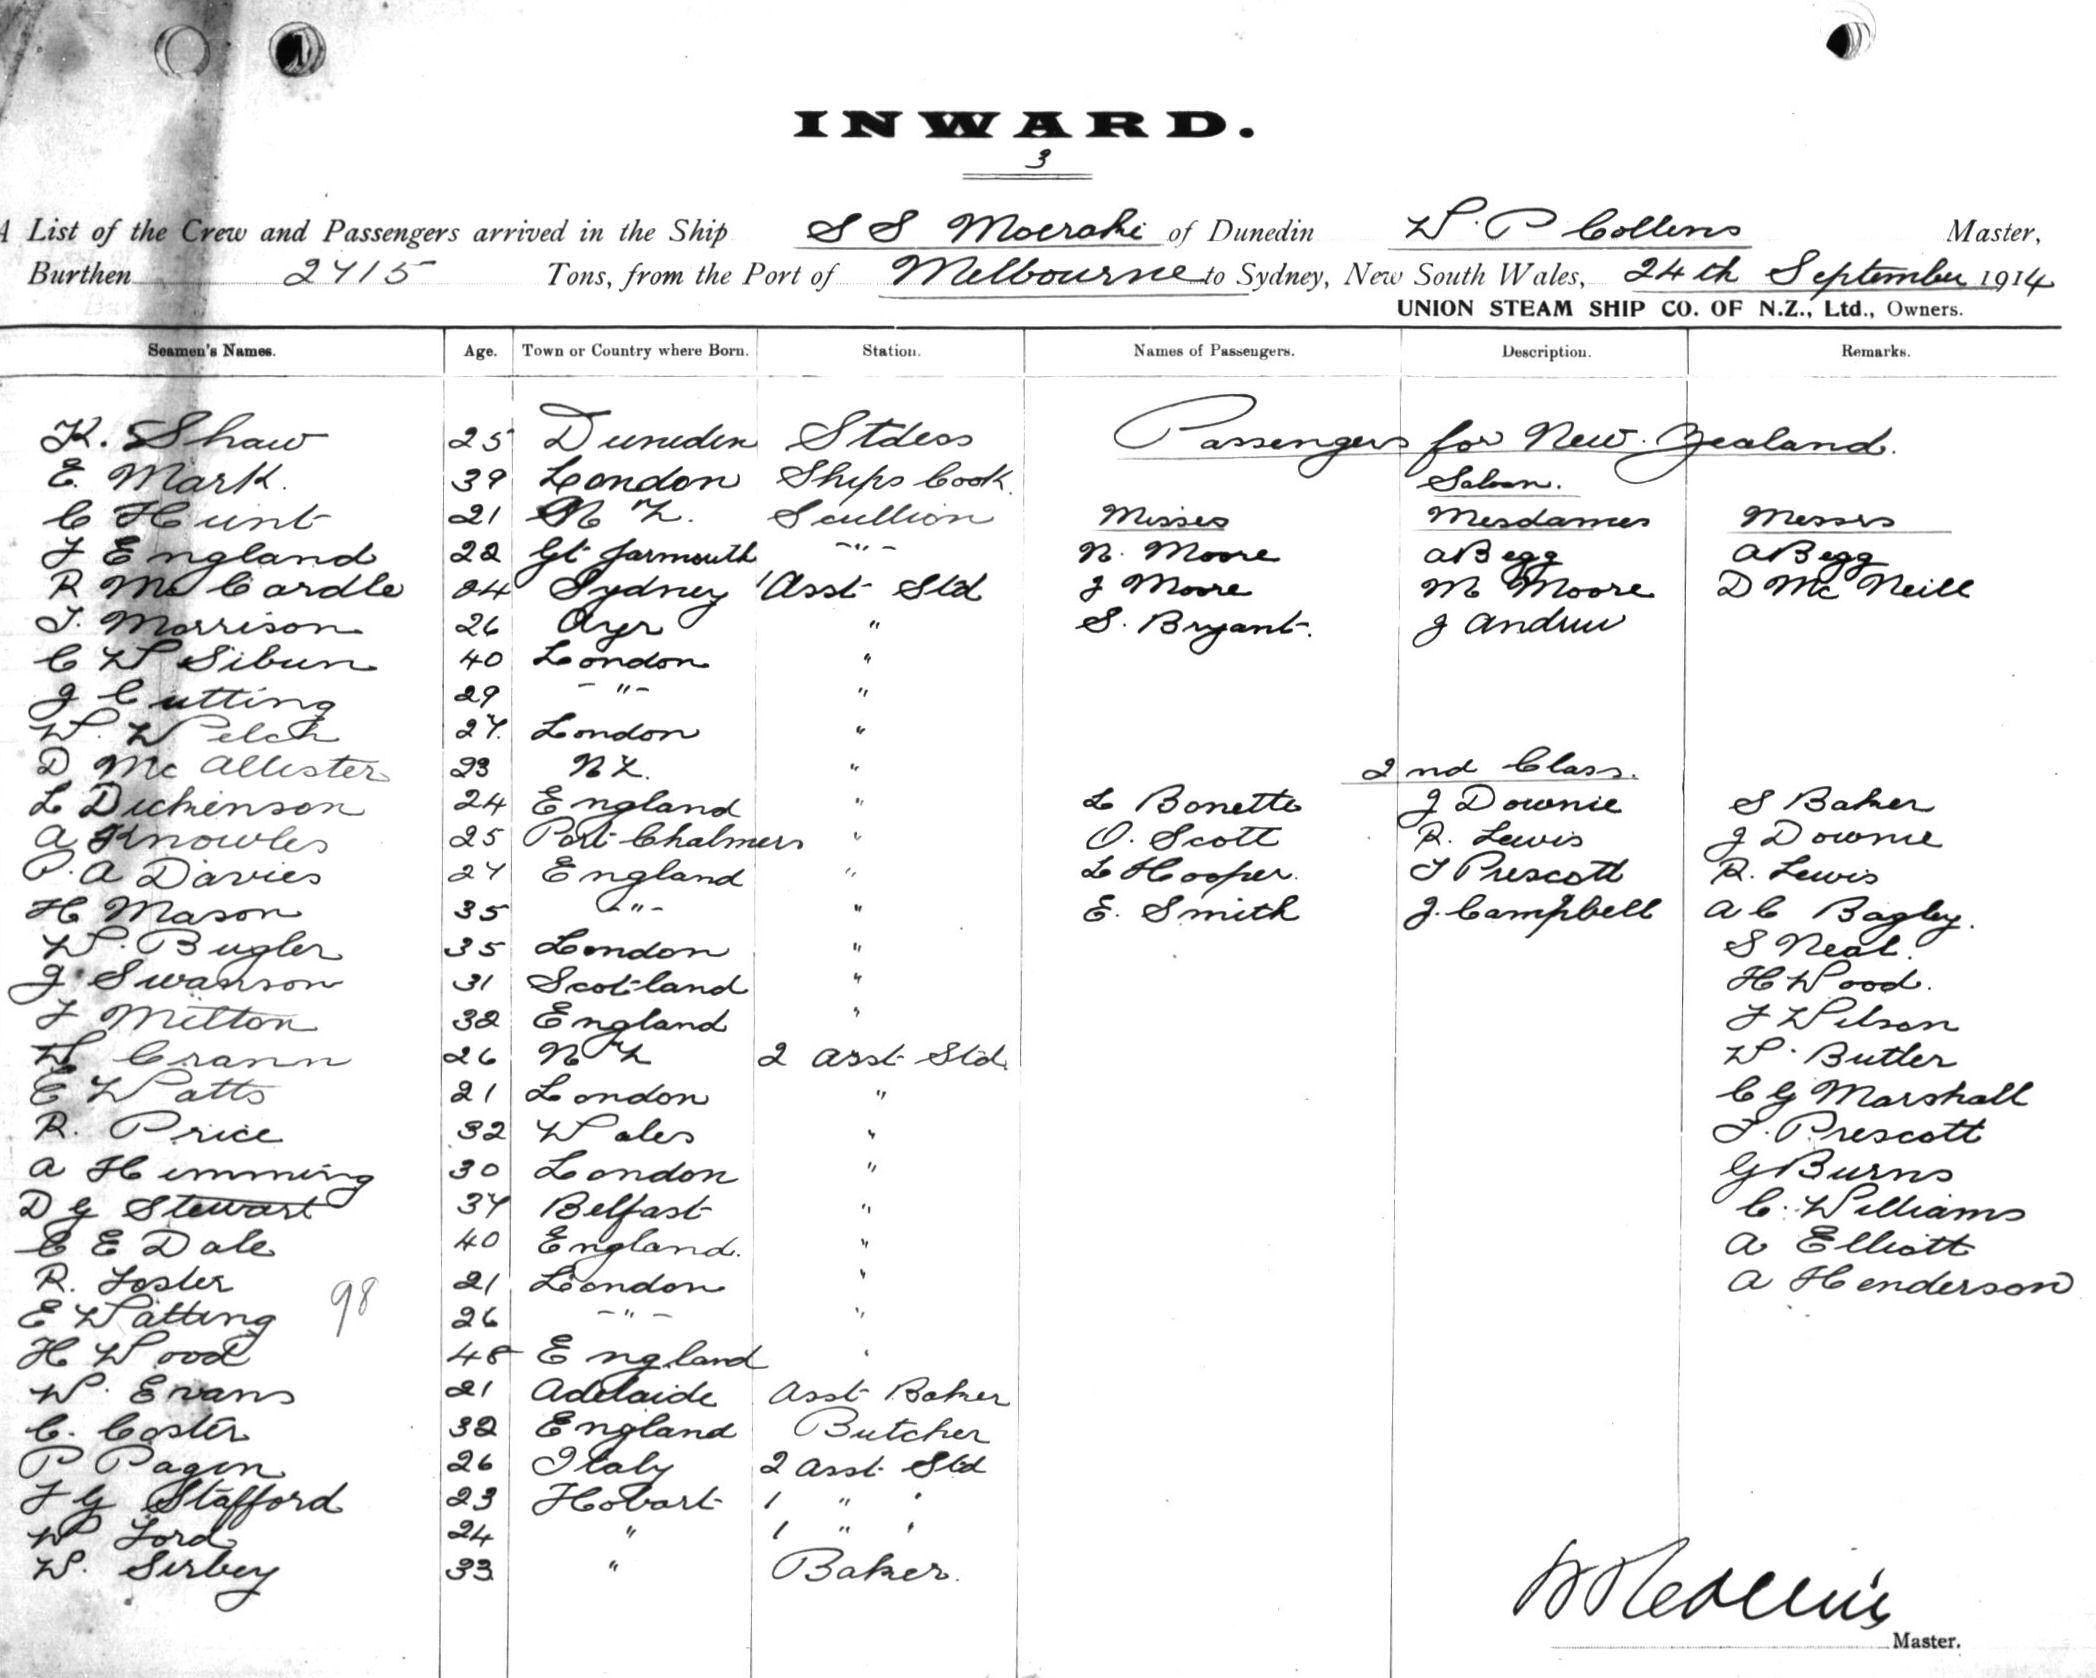 INWARD.
3
A List of the Crew and Passengers arrived in the Ship S S Moeraki of Dunedin W. P Collins Master,
Burthen 2715 Tons, from the Port of Melbourne to Sydney, New South Wales, 24th September 1914
UNION STEAM SHIP CO. OF N.Z., Ltd., Owners.
Seamen's Names. Age. Town or Country where Born. Station. Names of Passengers. Description. Remarks.
K. Shaw 25 Dunedin Stdess Passengers for New Zealand.
E. Mark. 39 London Ships Cook. Saloon.
C Hunt 21 N Z. Scullion Misses Mesdames Messrs
F England 22 Gt Yarmouth -"- N. Moore A Begg A Begg
R McCardle 24 Sydney 1 Asst Std J Moore M Moore D McNeill
T. Morrison 26 Ayr " S. Bryant. J Andrew
C W Sibun 40 London "
J Cutting 29 -"- "
W. Welch 27. London "
D McAllister 23 N Z. " 2nd Class.
L Dickenson 24 England " L Bonette J Downie S Baker
A Knowles 25 Port Chalmers " O. Scott R. Lewis J Downie
P. A Davies 27 England " L Hooper. F Prescott R. Lewis
H Mason 35 -"- " E. Smith J. Campbell A C Bagley.
W. Bugler 35 London " S Neal.
J. Swanson 31 Scotland " H Wood.
F Milton 32 England " F Wilson
W Crann 26 N Z 2 Asst Std. W. Butler
E Watts 21 London " C G Marshall
R. Price 32 Wales " F. Prescott
A Himming 30 London " G Burns
D G Stewart 37 Belfast " C. Williams
C E Dale 40 England. " A Elliott
R. Foster 21 London " A Henderson
E Watting 98 26 -"- "
H Wood 48 England "
W. Evans 21 Adelaide Asst Baker
C. Coster 32 England Butcher
P Pagin 26 Italy 2 Asst Std
F G Stafford 23 Hobart 1 " "
W Ford 24 " 1 " "
W. Sirbey 33 " Baker.
W P Collins
Master.